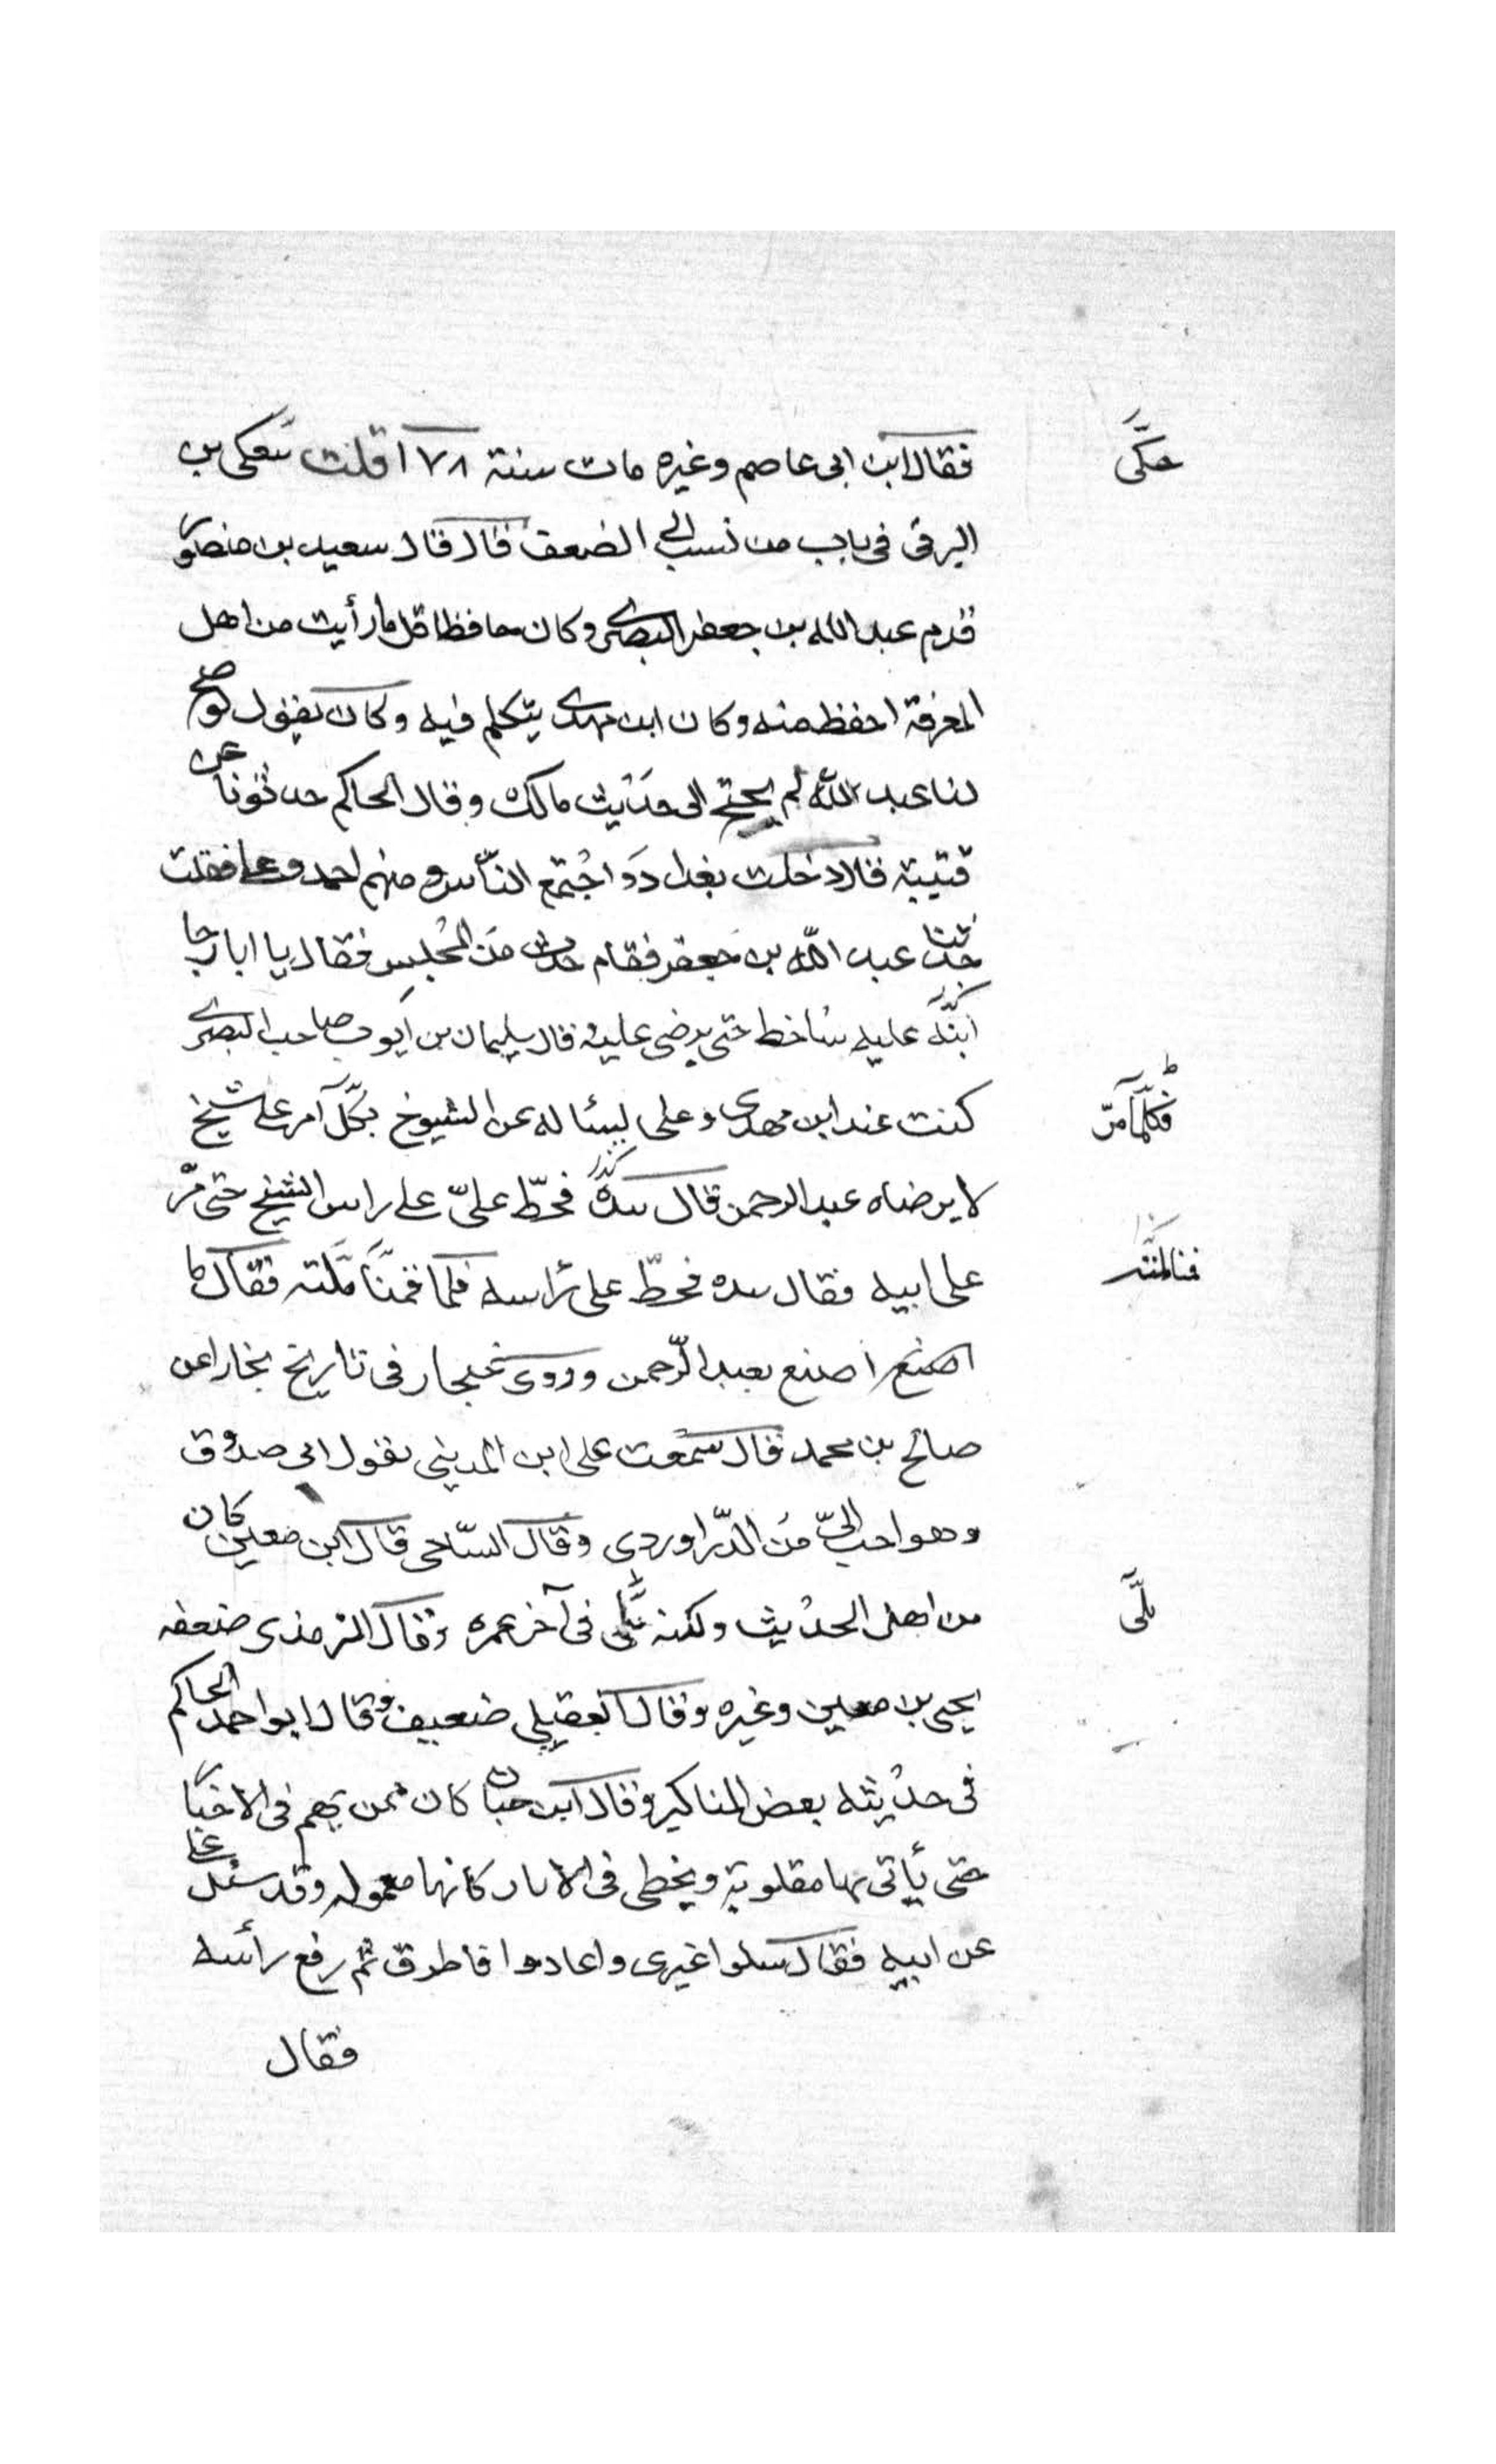 فقال ابن ابی عاصم وغیره مات سنة ١٧٨ قلت حکی بن
حکی
البرقی فی باب من نسب الی الضعف قال قال سعید بن منصور
قدم عبد الله بن جعفر البصری وکان حافظا قل ما رأیت من اهل
المعرفة احفظ منه وکان ابن مهدی یتکلم فیه وکان یقول لو صح
لنا عبد الله لم یحتج الی حدیث مالک وقال الحاکم حدثونا عن
قتیبة قال دخلت بغداد واجتمع الناس ومنهم احمد وعلی فقلت
حدثنا عبد الله بن جعفر فقام حدث من المجلس فقال یا ابا رجا
ابنه علیه ساخط حتی یرضی علیه قال سلیمان بن ایوب صاحب البصری
کنت عند ابن مهدی وعلی یسئاله عن الشیوخ بکل آمر علی شیخ
فکلما مر
لا یرضاه عبد الرحمن قال بیده فخط علی علی راس الشیخ حتی مر
علی ابیه فقال بیده فخط علی راسه فلما قمنا ملته فقال ما
فنا لمته
اصنع اصنع بعبد الرحمن وروی غنجار فی تاریخ بخارا عن
صالح بن محمد قال سمعت علی ابن المدینی یقول ابی صدوق
وهو احب الی من الدراوردی وقال الساجی قال ابن معین کان
من اهل الحدیث ولکنه بلی فی آخر عمره وقال الترمذی ضعفه
بلی
یحیی بن معین وغیره وقال العقیلی ضعیف وقال ابو احمد الحاکم
فی حدیثه بعض المناکیر وقال ابن حبان کان ممن یهم فی الاخبار
حتی یأتی بها مقلوبة ویخطی فی الاثار کانها معموله وقد سئل علی
عن ابیه فقال سلوا غیری واعادوا فاطرق ثم رفع رأسه
فقال